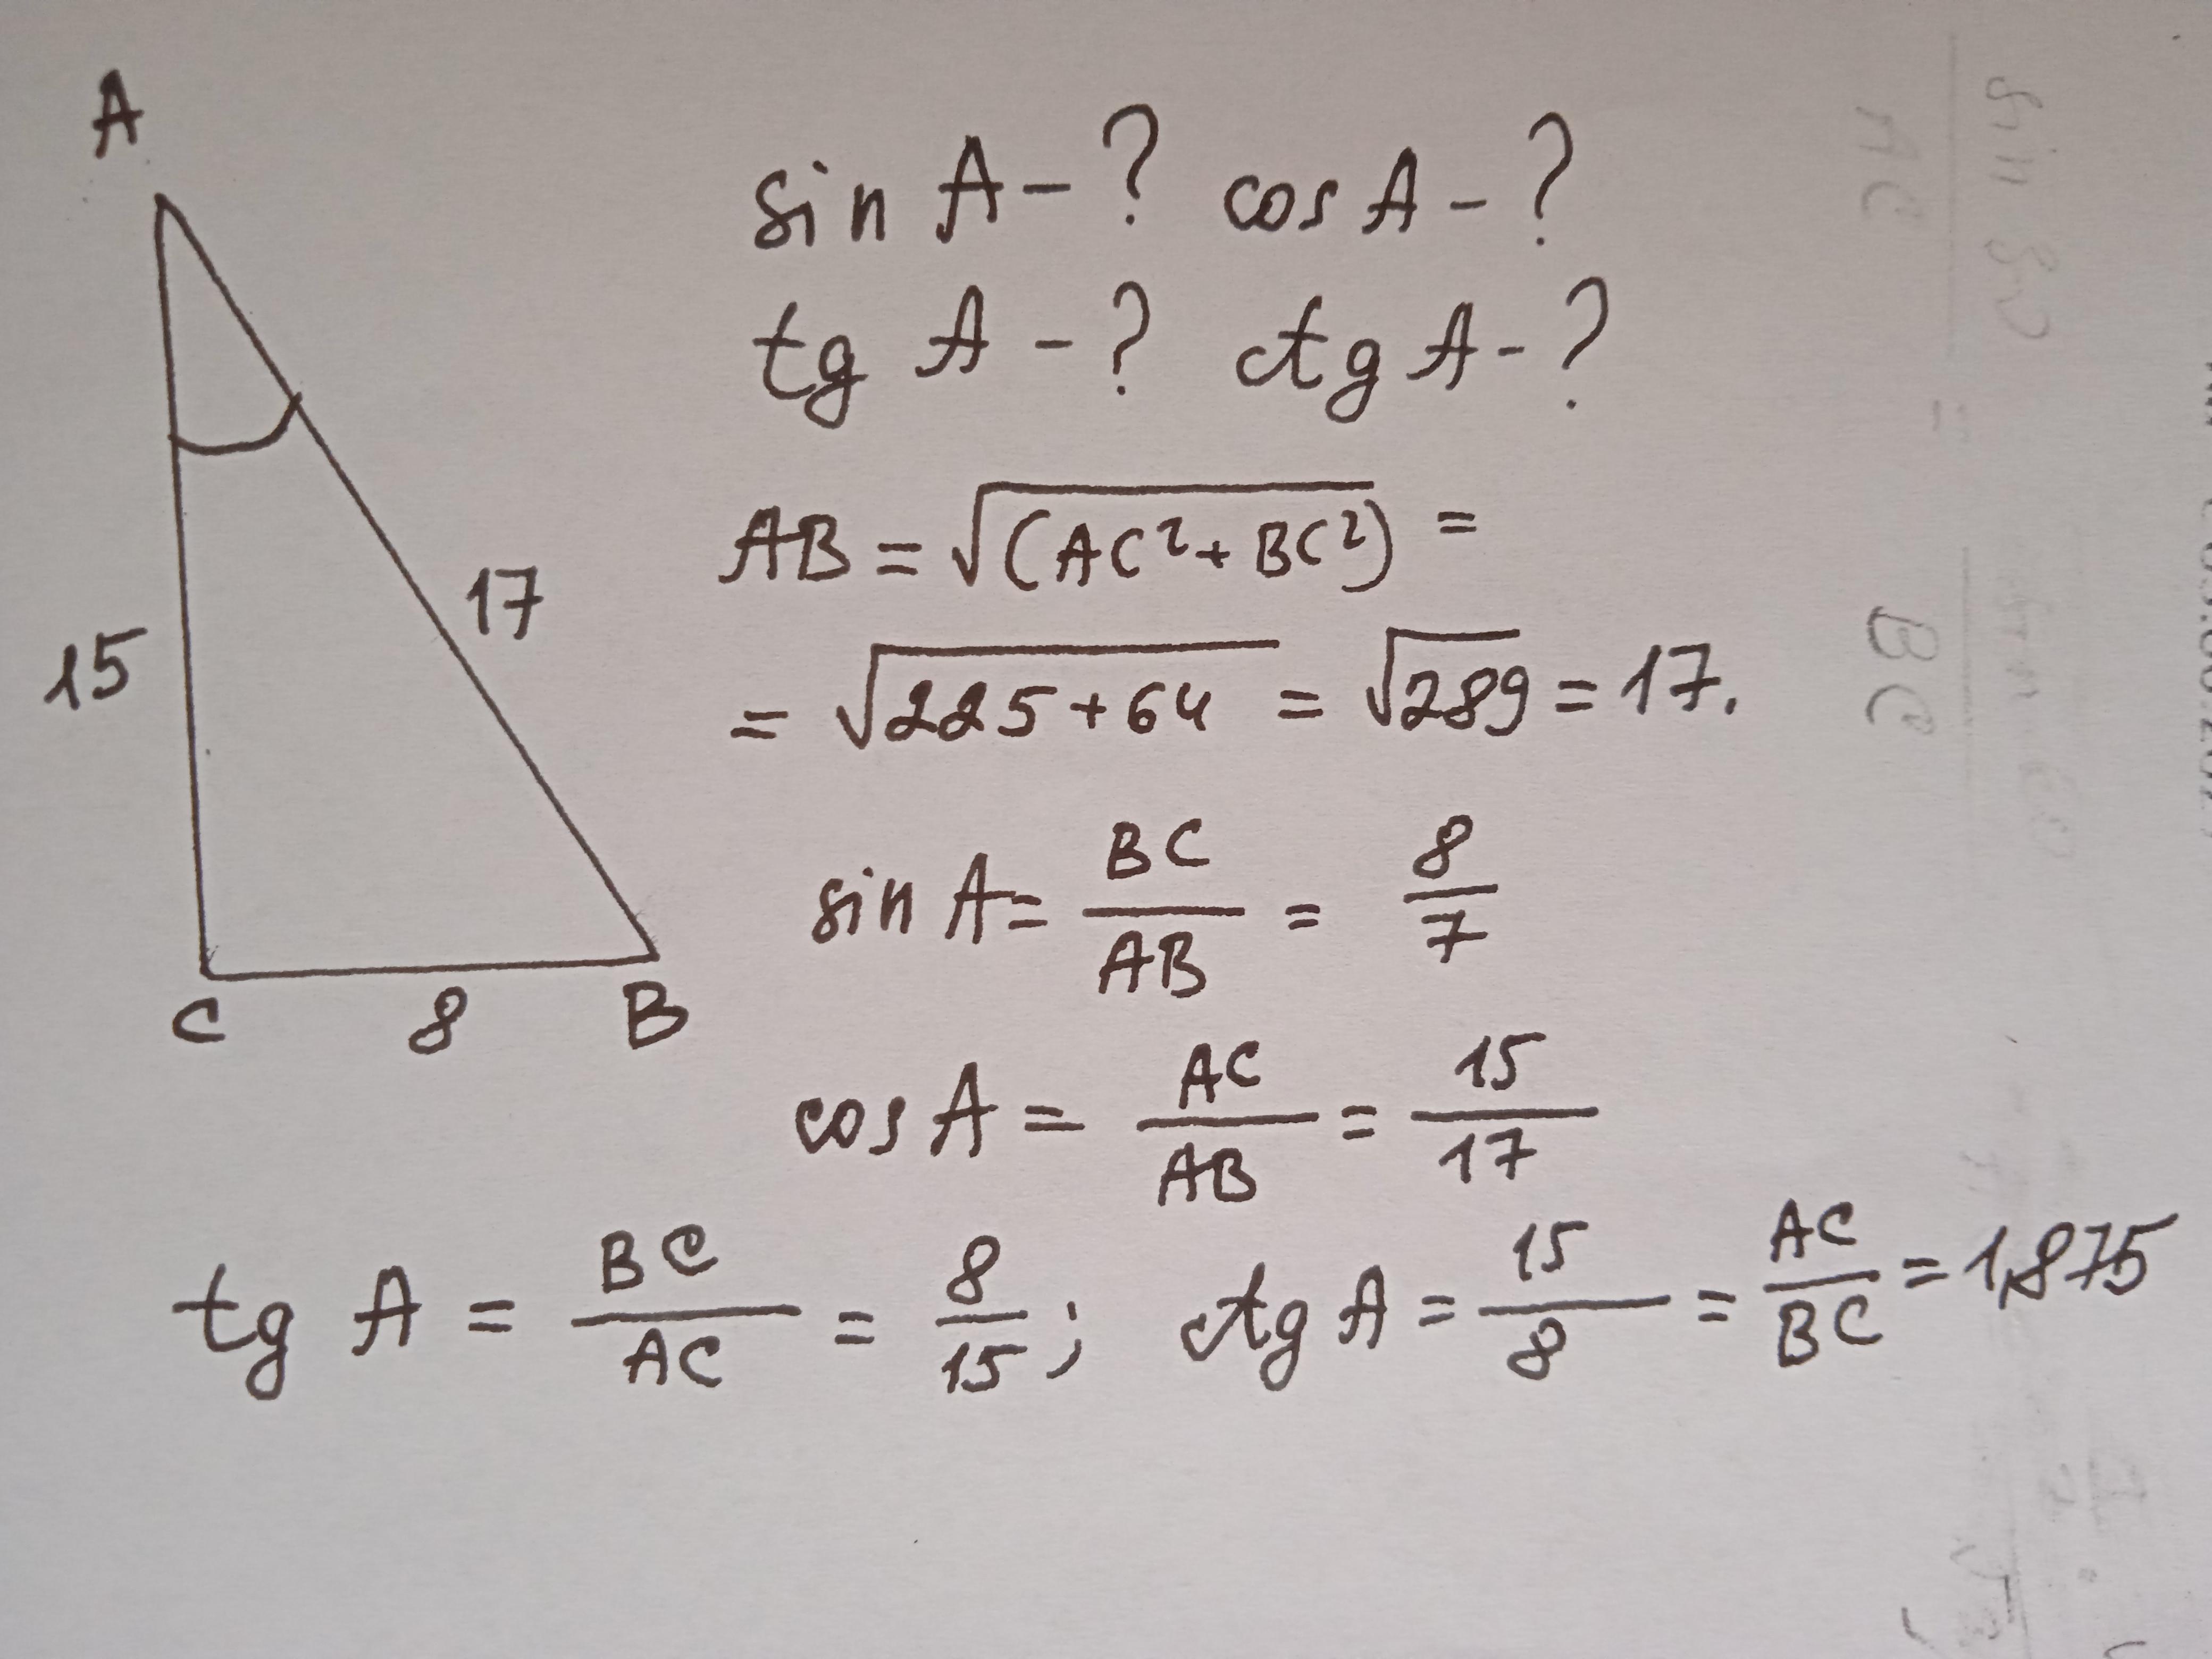 A
15
17
C 8 B
sin A - ? cos A - ?
tg A - ? ctg A - ?
AB = √(AC² + BC²) =
= √225 + 64 = √289 = 17.
sin A = BC/AB = 8/7
cos A = AC/AB = 15/17
tg A = BC/AC = 8/15 ; ctg A = 15/8 = AC/BC = 1,875
AC
sin
=
BC